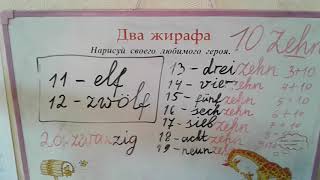 Два жирафа
10 zehn
Нарисуй своего любимого героя.
11 - elf
12 - zwölf
13 - dreizehn 3+10
14 - vierzehn 4+10
15 - fünfzehn 5+10
16 - sechzehn 6+10
17 - siebzehn 7+10
18 - achtzehn
19 - neunzehn
20 zwanzig